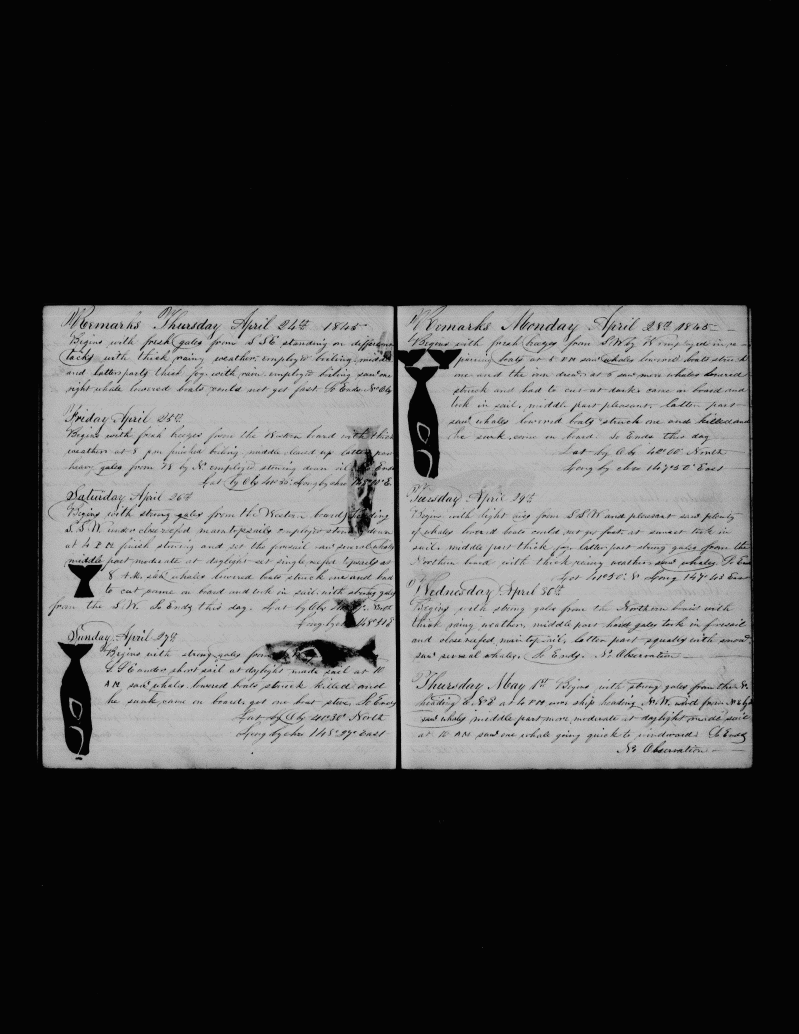 Remarks Thursday April 24th 1845
Begins with fresh gales from S S E standing on different
tacks with thick rainy weather. employed boiling. middle
and latter parts thick fog with rain employed boiling saw one
right whale lowered boats could not get fast. So Ends No Obs
Friday April 25th
Begins with fresh breezes from the Western board with thick
weather at 8 pm finished boiling middle cleared up latter part
heavy gales from W by N. employed stowing down oil So Ends
Lat by Obs 40° Long by chro E.
Saturday April 26th
Begins with strong gales from the Western board heading
S.S.W under close reefed maintopsails employed stowing down
at 4 P M finish stowing and set the foresail saw several whales
middle part moderate at daylight set single reefed topsails at
8 A.M. saw whales lowered boats struck one and had
to cut came on board and took in sail. with strong gales
from the S.W. So Ends this day. Lat by Obs North
Long by chro 148° E
Sunday April 27th
Begins with strong gales from
S S E under short sail at daylight made sail at 10
A M saw whales lowered boats struck killed and
he sunk came on board. got one boat stove. So Ends
Lat by Obs 40° 30' North
Long by chro 148° 27' East
Remarks Monday April 28th 1845
Begins with fresh breezes from S.W by W employed in re-
pairing boats at 5 P M saw whales lowered boats struck
one and the iron drew at 6 saw more whales lowered
struck and had to cut at dark came on board and
took in sail. middle part pleasant. latter part
saw whales lowered boats struck one and killed and
he sunk. came on board. So Ends this day
Lat by Obs 40° 00' North
Long by chro 147° 50' East
Tuesday April 29th
Begins with light airs from S.S.W and pleasant saw plenty
of whales lowered boats could not go fast. at sunset took in
sail. middle part thick fog. latter part strong gales from the
Northern board with thick rainy weather saw whales So Ends
Lat 40° 50' N Long 147° 45 East
Wednesday April 30th
Begins with strong gales from the Northern board with
thick rainy weather, middle part hard gales took in foresail
and close reefed main top sail, latter part squally with snow
saw several whales. So Ends. No Observation
Thursday May 1st Begins with strong gales from the N.
heading E. N. E at 4 P M wore ship heading N. W. wind from N E by E
saw whales middle part more moderate at daylight made sail
at 10 A M saw one whale going quick to windward. So Ends
No Observation